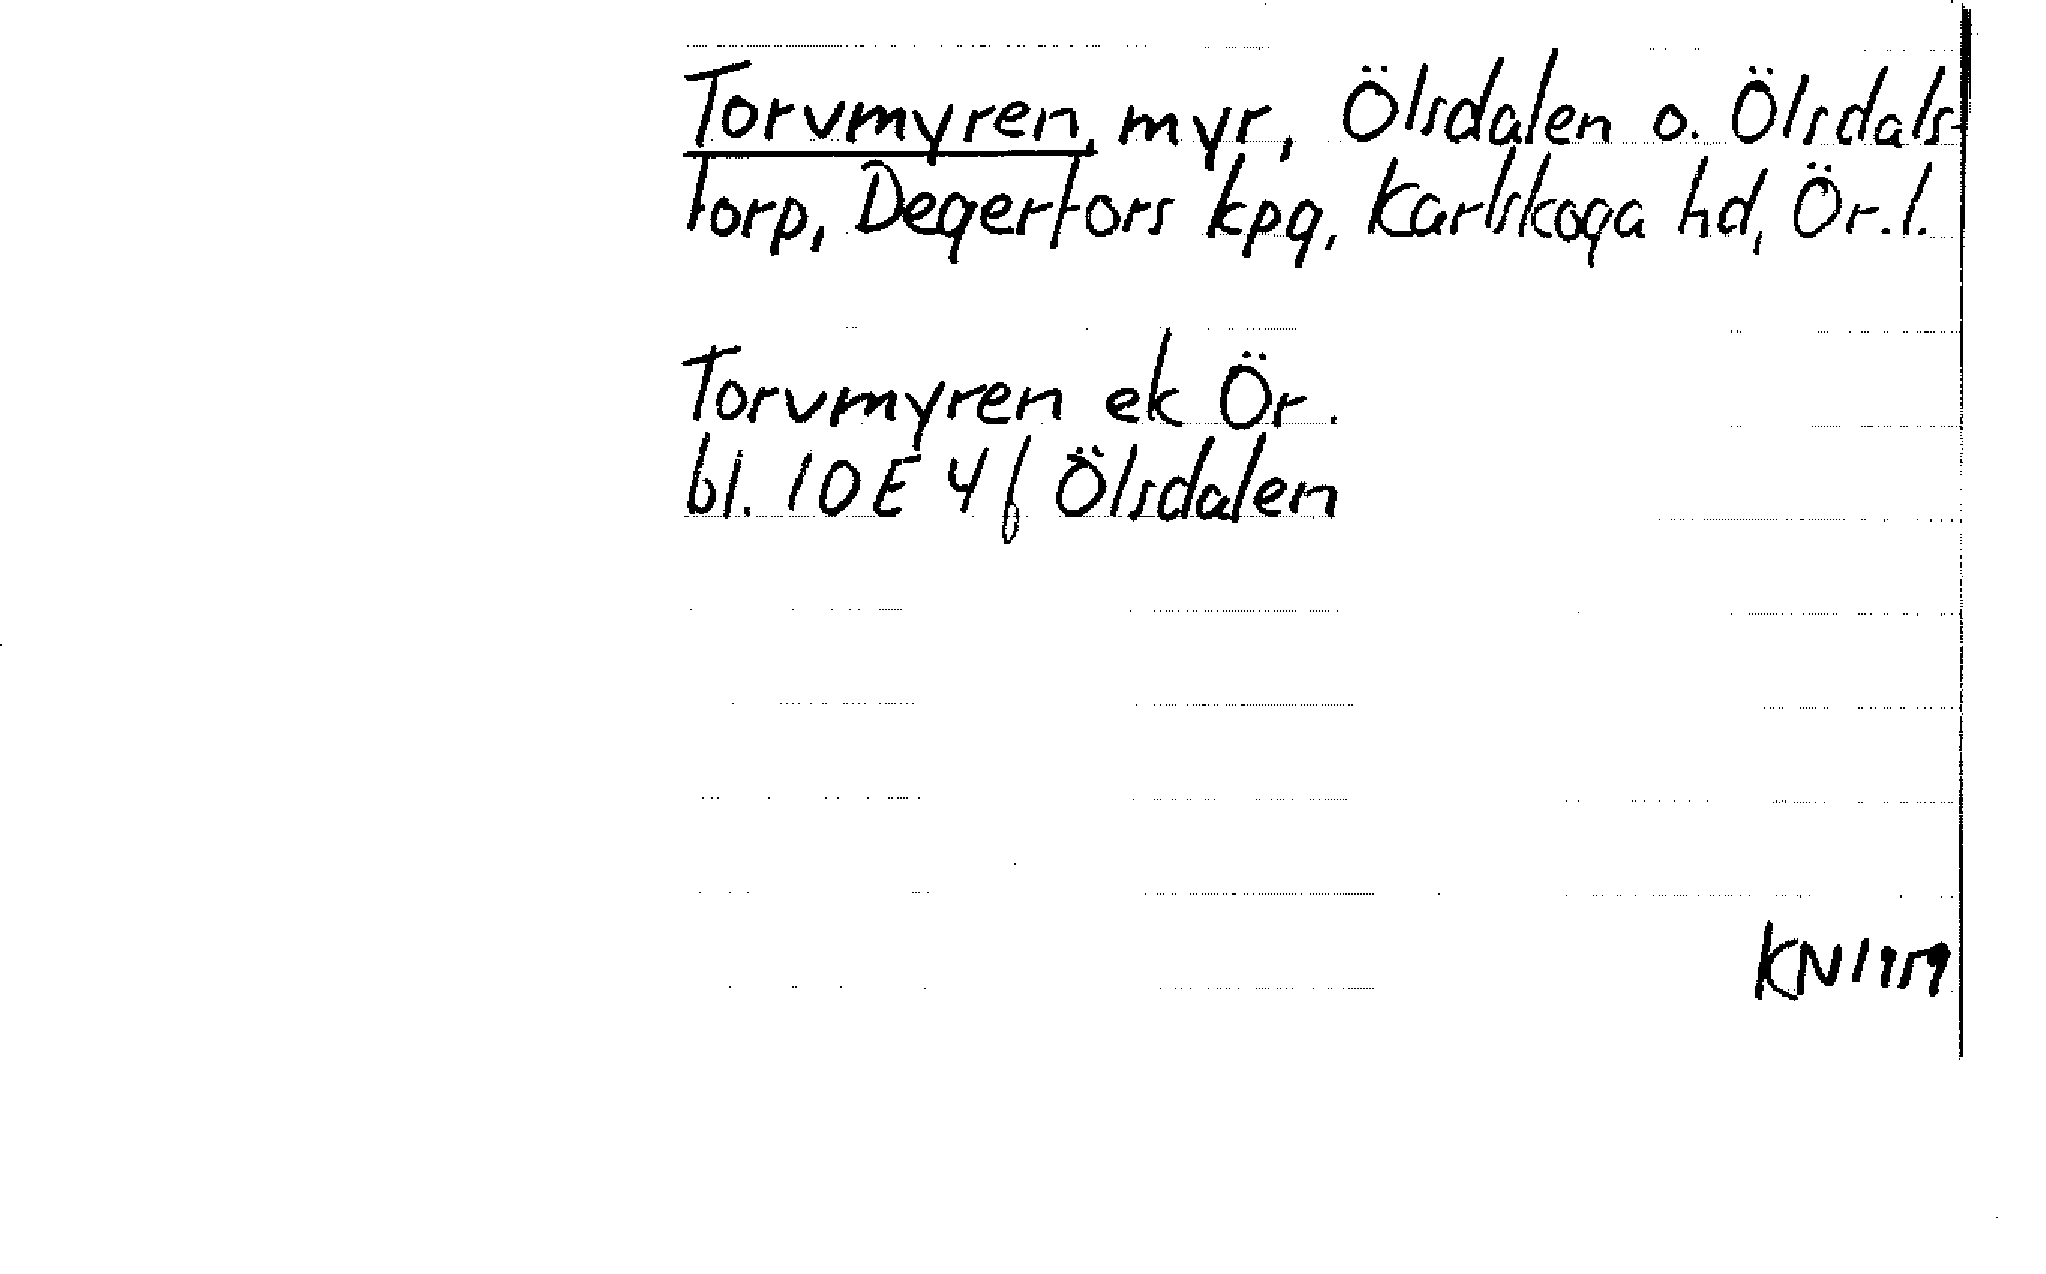 Torvmyren, myr, Ölsdalen o. Ölsdals-
torp, Degerfors kpg, Karlskoga hd, Ör. l.
Torvmyren ek Ör.
bl. 10E 4f Ölsdalen
KN 1959